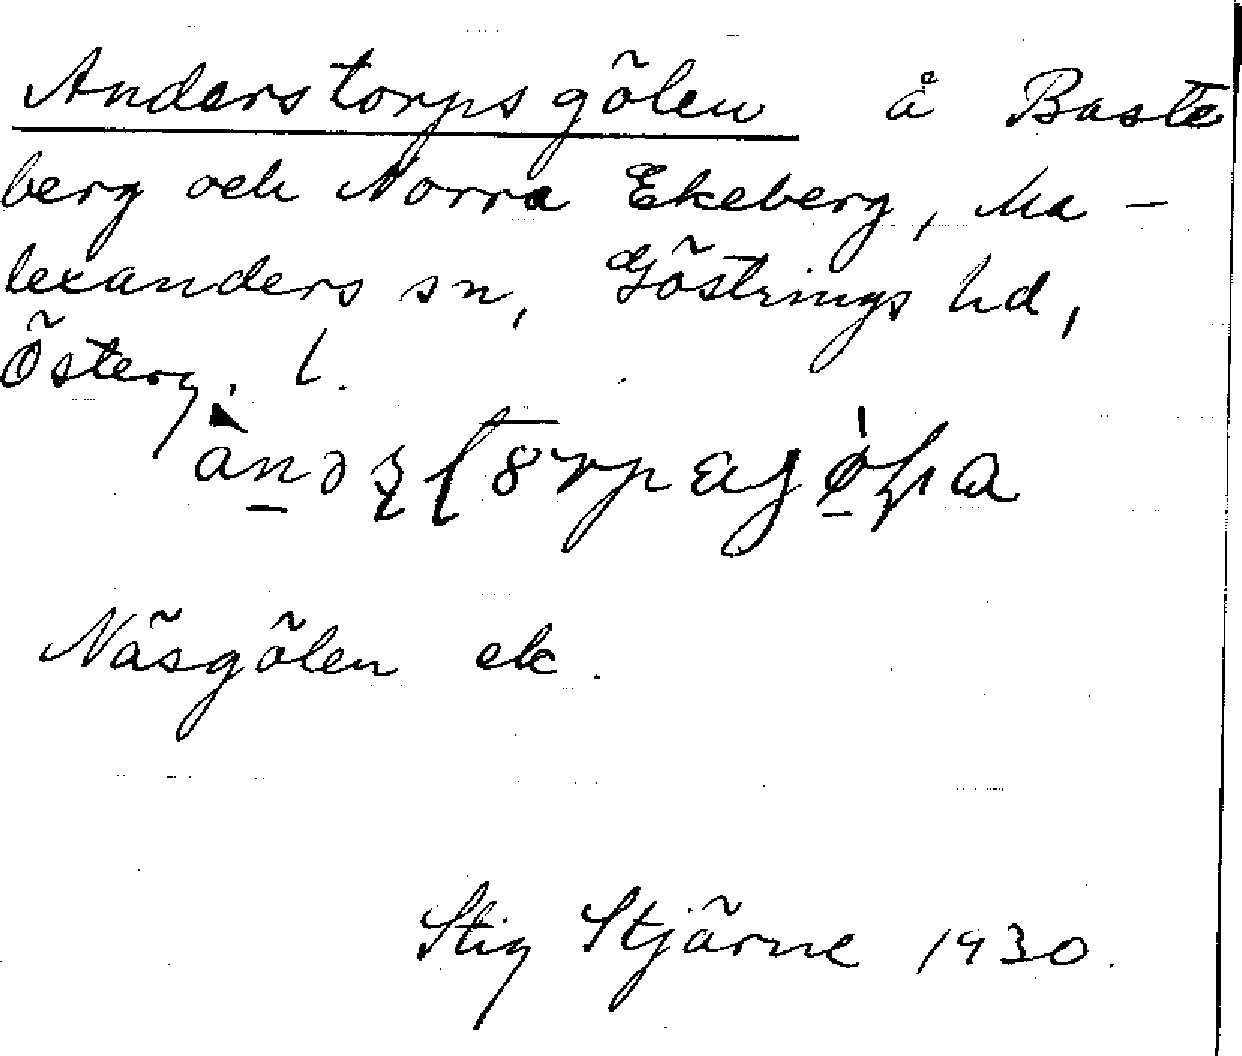 Anderstorpsgölen å Baste
berg och Norra Ekeberg, Ma-
lexanders sn, Göstrings hd,
Österg. l.
Näsgölen ek.
Stig Stjärne 1930.